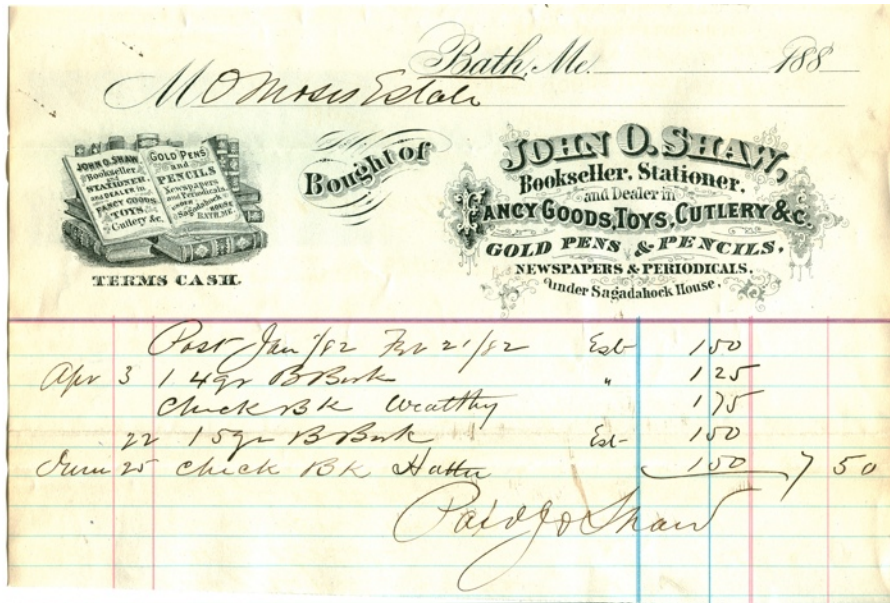 Bath, Me. 188
M O Moses Estate
JOHN O. SHAW,
Bookseller,
and
STATIONER,
and DEALER in
FANCY GOODS,
TOYS,
Cutlery &c.
GOLD PENS
and
PENCILS
Newspapers
and Periodicals,
UNDER
Sagadahock
HOUSE
BATH, ME.
TERMS CASH.
Bought of
JOHN O. SHAW,
Bookseller, Stationer,
and Dealer in
FANCY GOODS, TOYS, CUTLERY &C.
GOLD PENS & PENCILS,
NEWSPAPERS & PERIODICALS.
Under Sagadahock House.
Post Jan 1/82 21/82 Est 150
Apr 3 1 4qr B Book " 125
Check Bk 175
22 1 5qr B Book Est 150
June 25 Check Bk 150 7 50
Paid J O Shaw